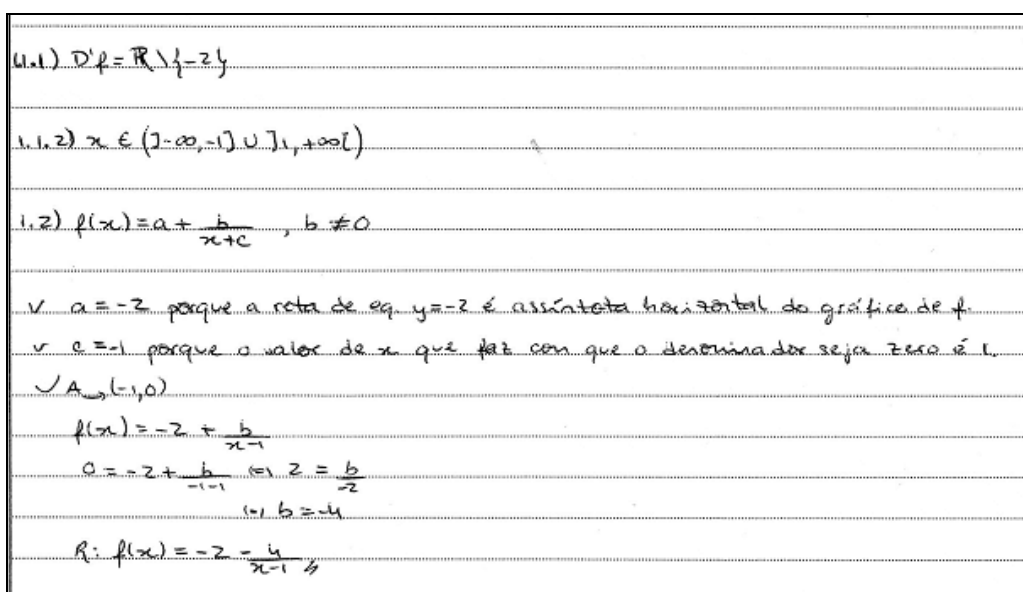 1.1.1) D'f = ℝ \ {-2}
1.1.2) x ∈ (]-∞, -1] ∪ ]1, +∞[)
1.2) f(x) = a + b/(x+c) , b ≠ 0
✓ a = -2 porque a reta de eq. y = -2 é assíntota horizontal do gráfico de f.
✓ c = -1 porque o valor de x que faz com que o denominador seja zero é 1.
✓ A → (-1, 0)
f(x) = -2 + b/(x-1)
0 = -2 + b/(-1-1) (=) 2 = b/(-2)
(=) b = -4
R: f(x) = -2 - 4/(x-1) //